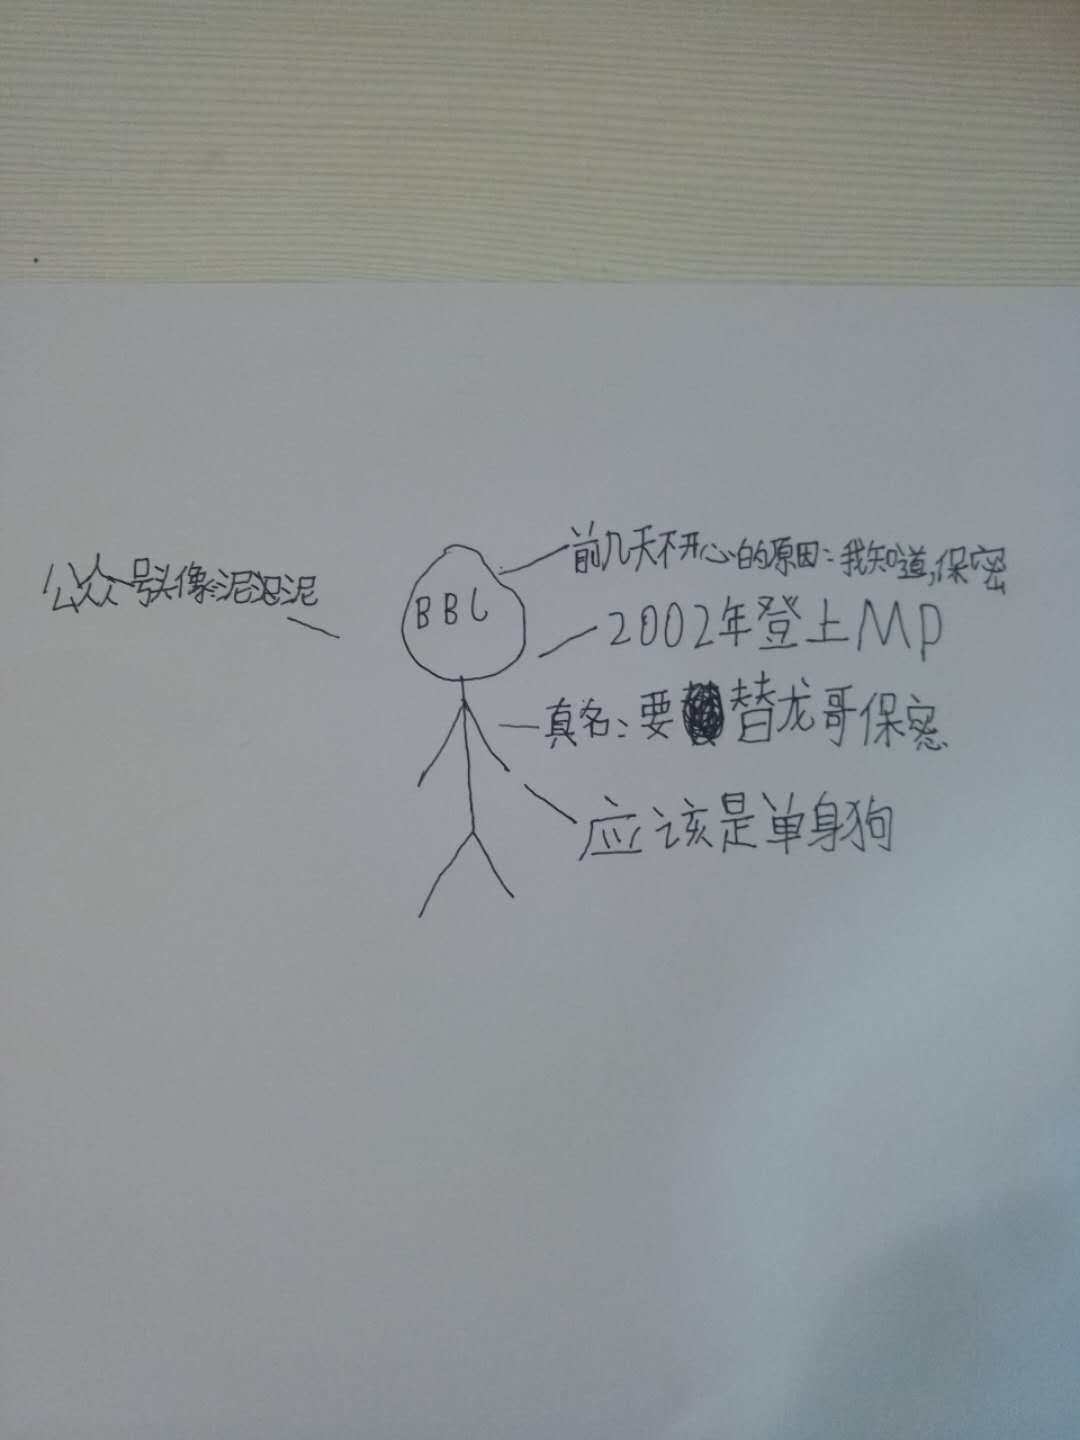 前几天不开心的原因：我知道,保密
公众号头像:泥泥泥
BBL
2002年登上MP
真名：要替龙哥保密
应该是单身狗